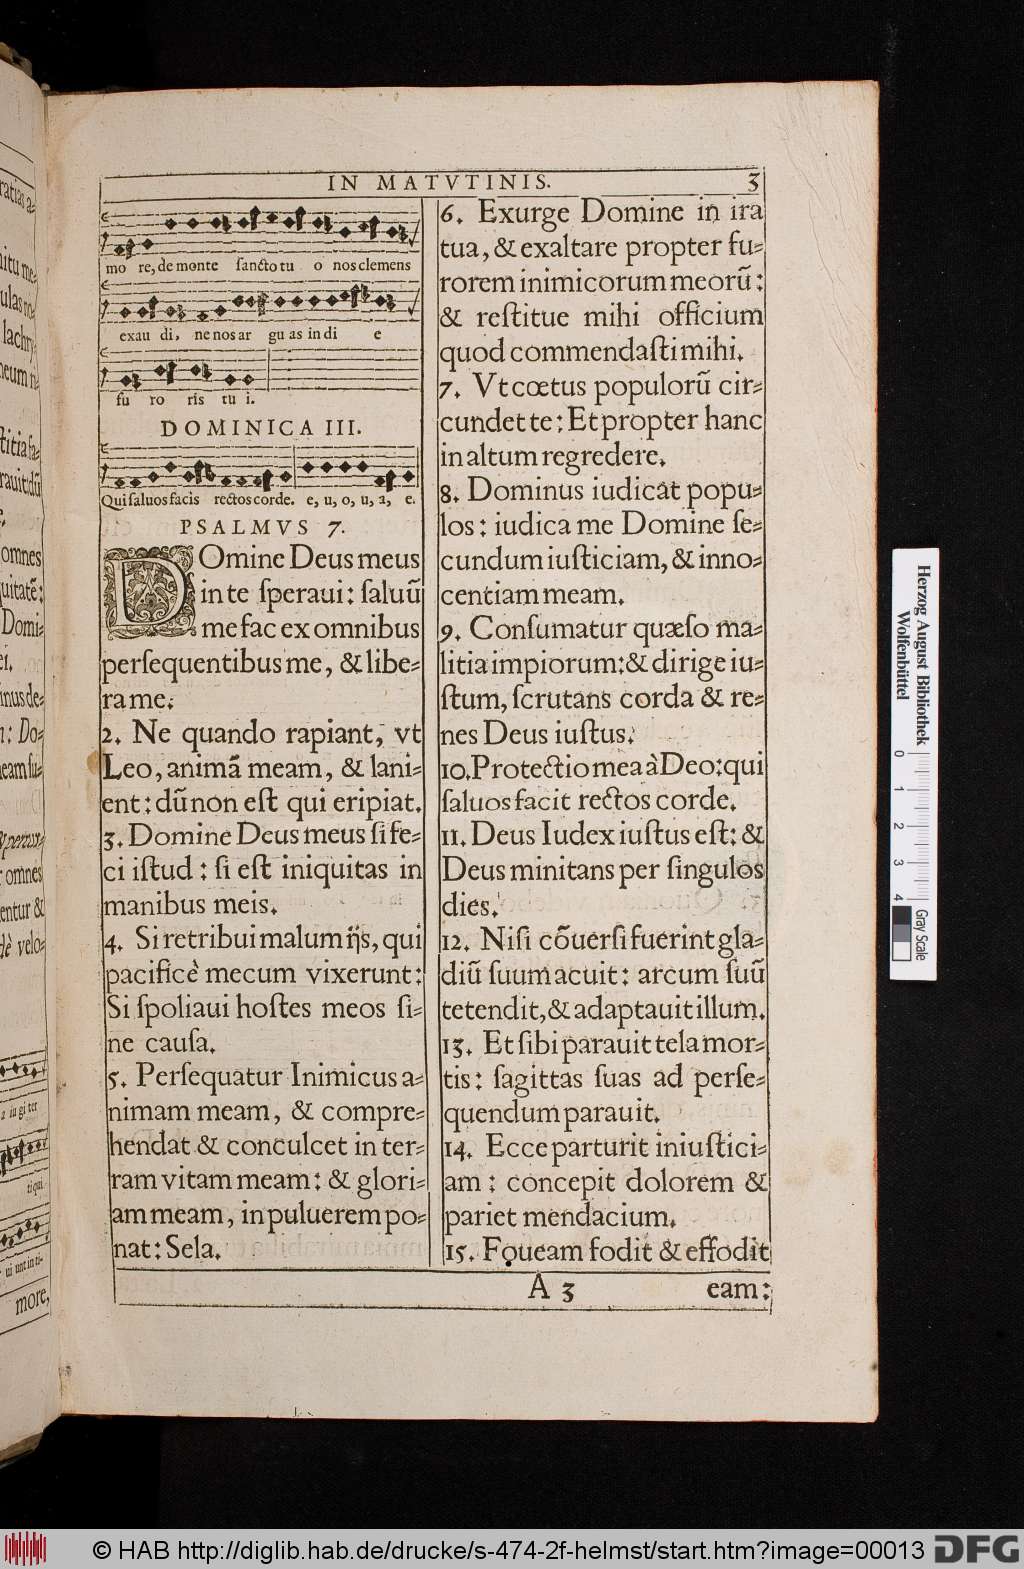 IN MATVTINIS. 3
mo re, de monte ſancto tu o nos clemens
exau di, ne nos ar gu as in di e
fu ro ris tu i.
DOMINICA III.
Qui ſaluos facis rectos corde. e, u, o, u, a, e.
PSALMVS 7.
DOmine Deus meus
in te ſperaui: ſaluũ
me fac ex omnibus
perſequentibus me, & libe-
ra me.
2. Ne quando rapiant, vt
Leo, animã meam, & lani-
ent: dũ non eſt qui eripiat.
3. Domine Deus meus ſi fe-
ci iſtud: ſi eſt iniquitas in
manibus meis.
4. Si retribui malum ijs, qui
pacificè mecum vixerunt:
Si ſpoliaui hoſtes meos ſi-
ne cauſa.
5. Perſequatur Inimicus a-
nimam meam, & compre-
hendat & conculcet in ter-
ram vitam meam: & glori-
am meam, in puluerem po-
nat: Sela.
6. Exurge Domine in ira
tua, & exaltare propter fu-
rorem inimicorum meorũ:
& reſtitue mihi officium
quod commendaſti mihi.
7. Vt cœtus populorũ cir-
cundet te: Et propter hanc
in altum regredere.
8. Dominus iudicat popu-
los: iudica me Domine ſe-
cundum iuſticiam, & inno-
centiam meam.
9. Conſumatur quæſo ma-
litia impiorum: & dirige iu-
ſtum, ſcrutans corda & re-
nes Deus iuſtus.
10. Protectio mea à Deo: qui
ſaluos facit rectos corde.
11. Deus Iudex iuſtus eſt: &
Deus minitans per ſingulos
dies.
12. Niſi cõuerſi fuerint gla-
diũ ſuum acuit: arcum ſuũ
tetendit, & adaptauit illum.
13. Et ſibi parauit tela mor-
tis: ſagittas ſuas ad perſe-
quendum parauit.
14. Ecce parturit iniuſtici-
am: concepit dolorem &
pariet mendacium.
15. Foueam fodit & effodit
A 3 eam:
Herzog August Bibliothek
Wolfenbüttel
0 1 2 3 4
Gray Scale
© HAB http://diglib.hab.de/drucke/s-474-2f-helmst/start.htm?image=00013 DFG